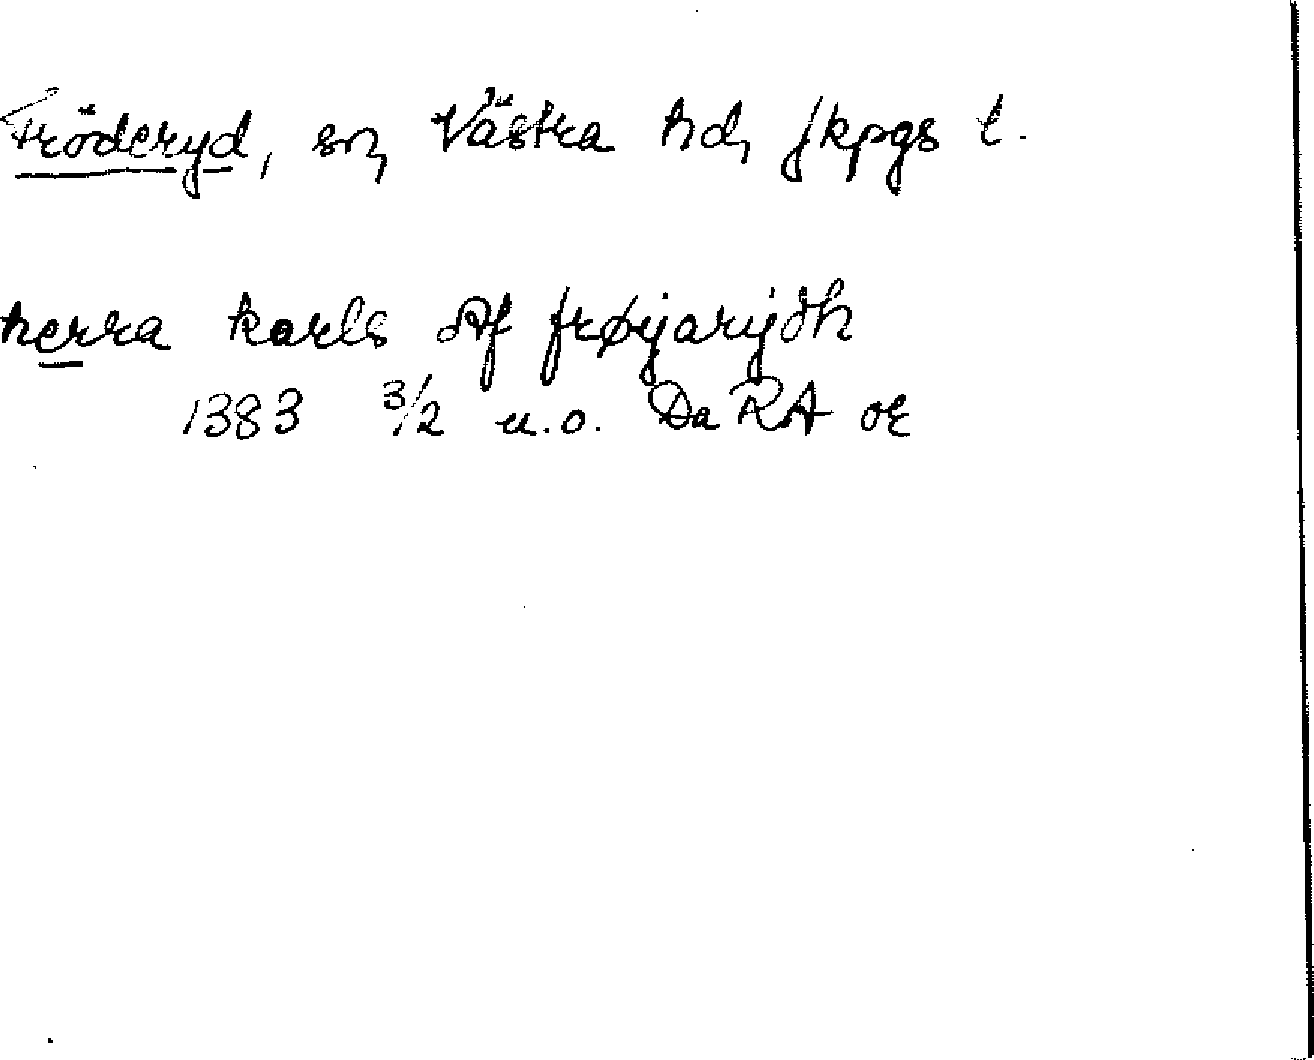 Fröderyd, sn, Västra hd, Jkpgs l.
herra karls Af frøyarydh
1383 3/2 u.o. Da RA or